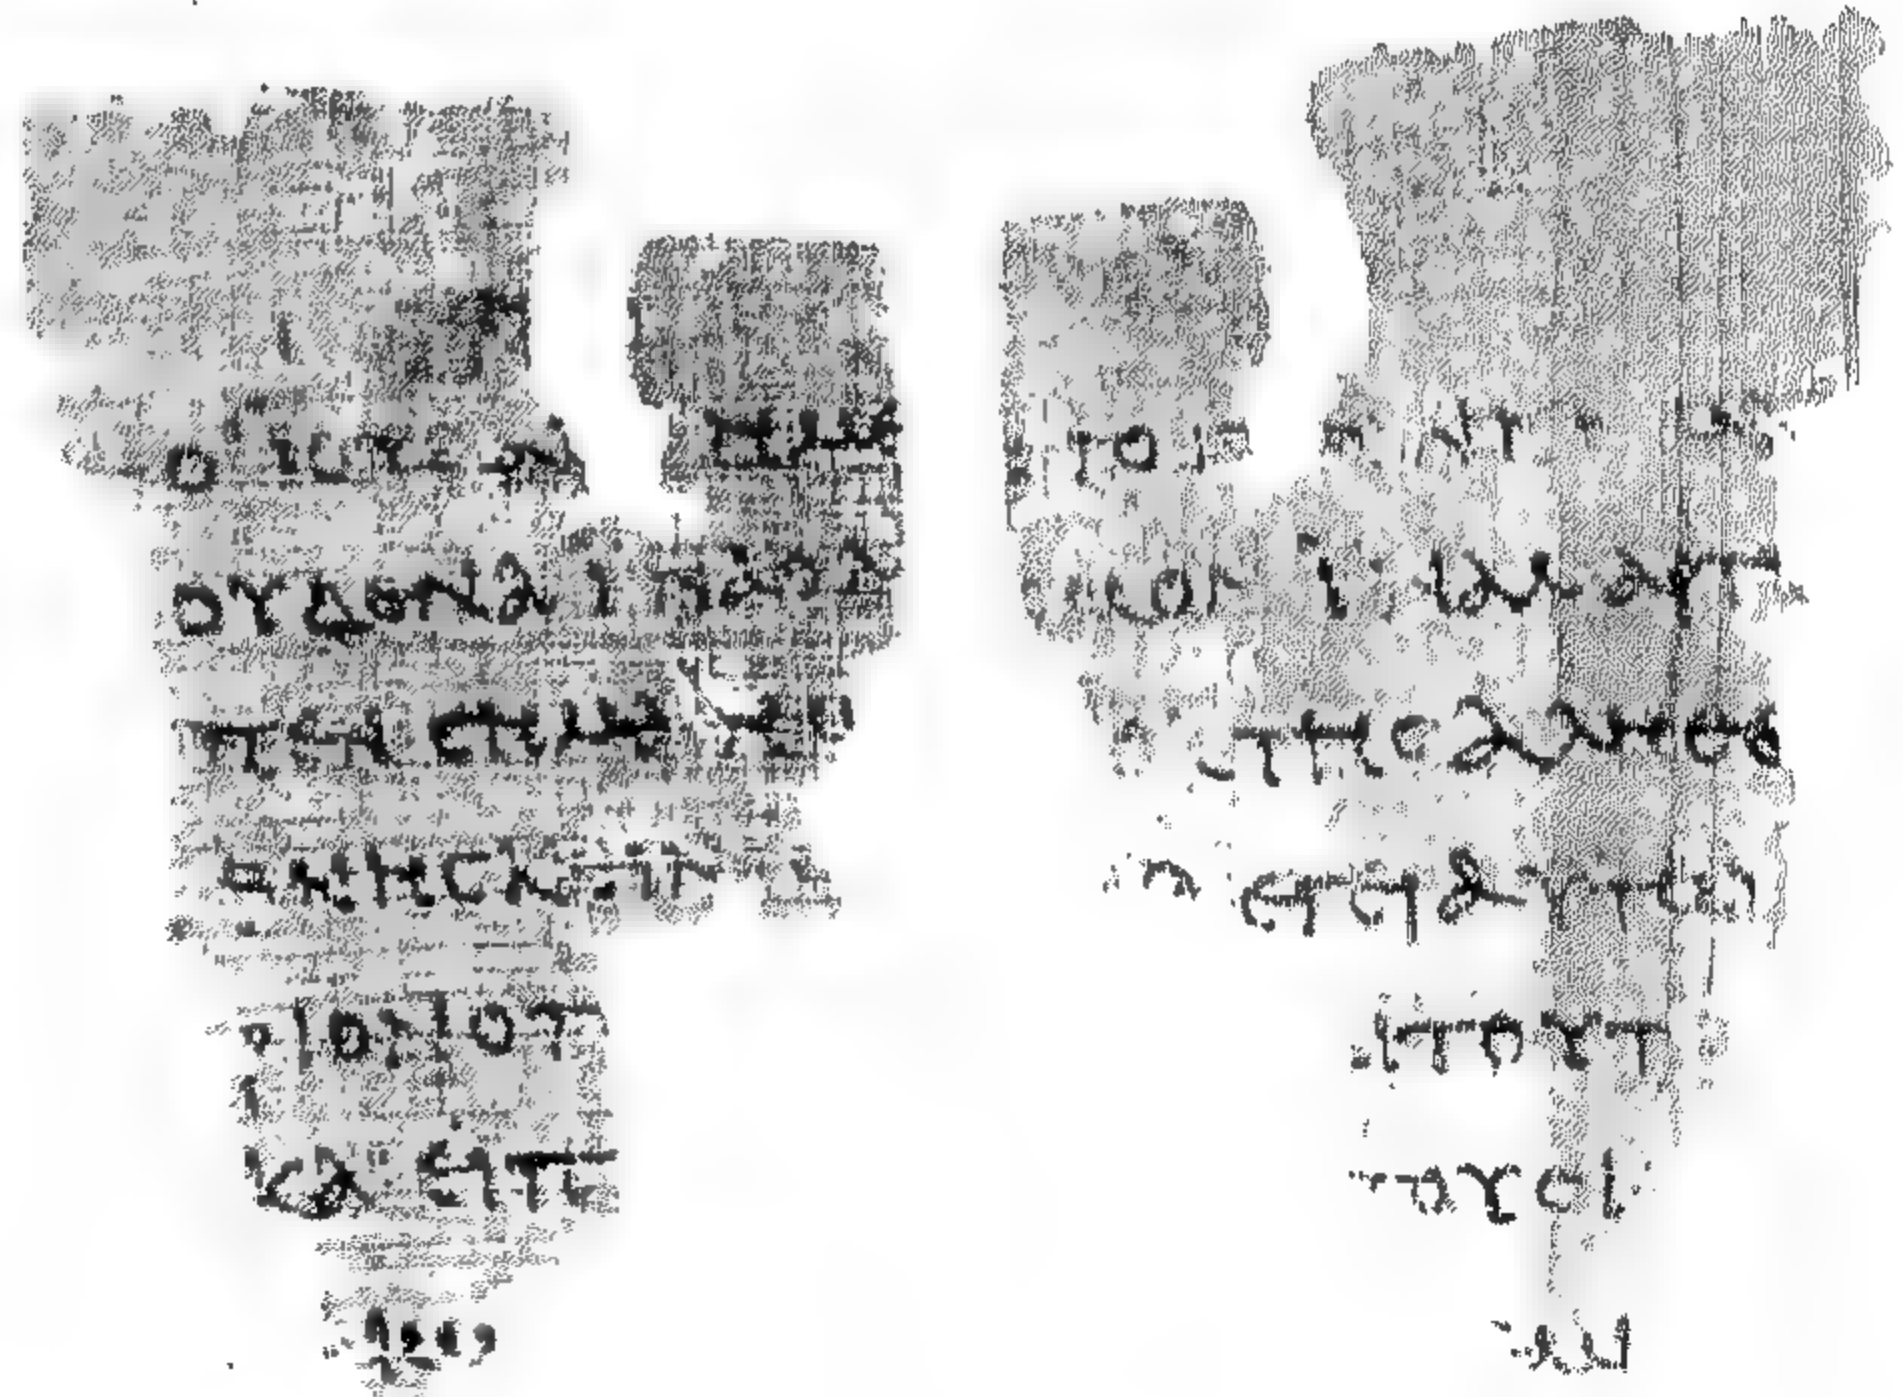 οι ιουδαι ημε
ουδενα ινα ο λ
πεν σημαινω
θνησκειν ισ
ριον ο π
και ειπ
αιω
τουτο γεγεννημαι
σμον ινα μαρτυ
εκ της αληθε
λεγει αυτω
ι τουτ
τους ι
μι